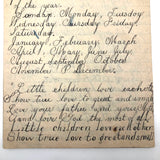 of the year.
Sunday, Monday, Tuesday
Wednesday, Thursday, Friday
Saturday.
January, February, March
April, May, June, July
August, September, October
November, December.
Little children love each other
Show true love to great and small
Love your father and
and love God the most of all
Little children love each other
Show true love to great and small